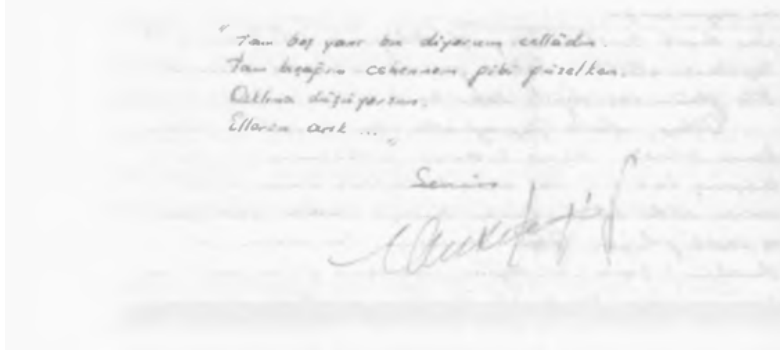 "Tam boş yanı bu diyorum celladın.
Tam bıçağın cehennem gibi güzelken.
Aklıma düşüyorsun.
Ellerin arık ..."
Senin